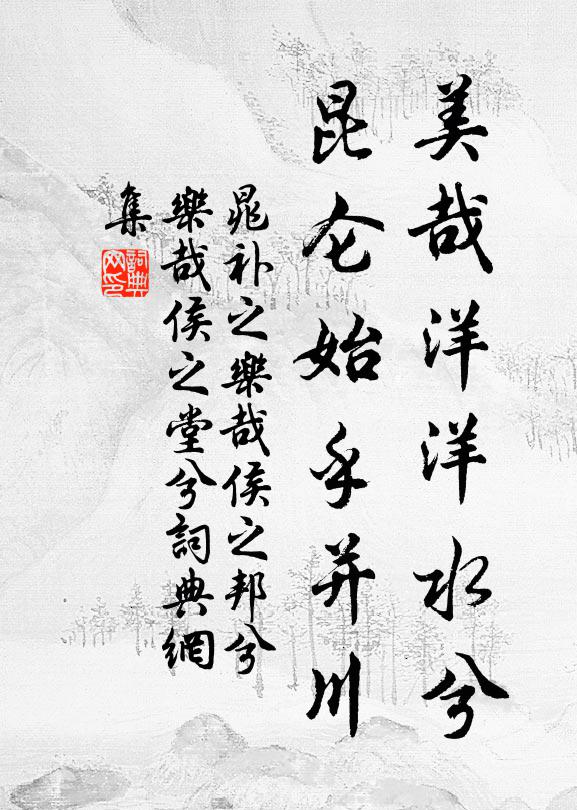 美哉洋洋水兮
昆仑始乎并川
晁补之樂哉侯之邦兮
樂哉侯之堂兮詞典網
集
詞典
网印